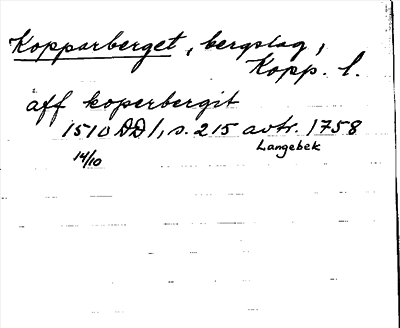 Kopparberget, bergslag,
Kopp. l.
åff koperbergit
1510 DD 1, s. 215 avtr. 1758
14/10 Langebek